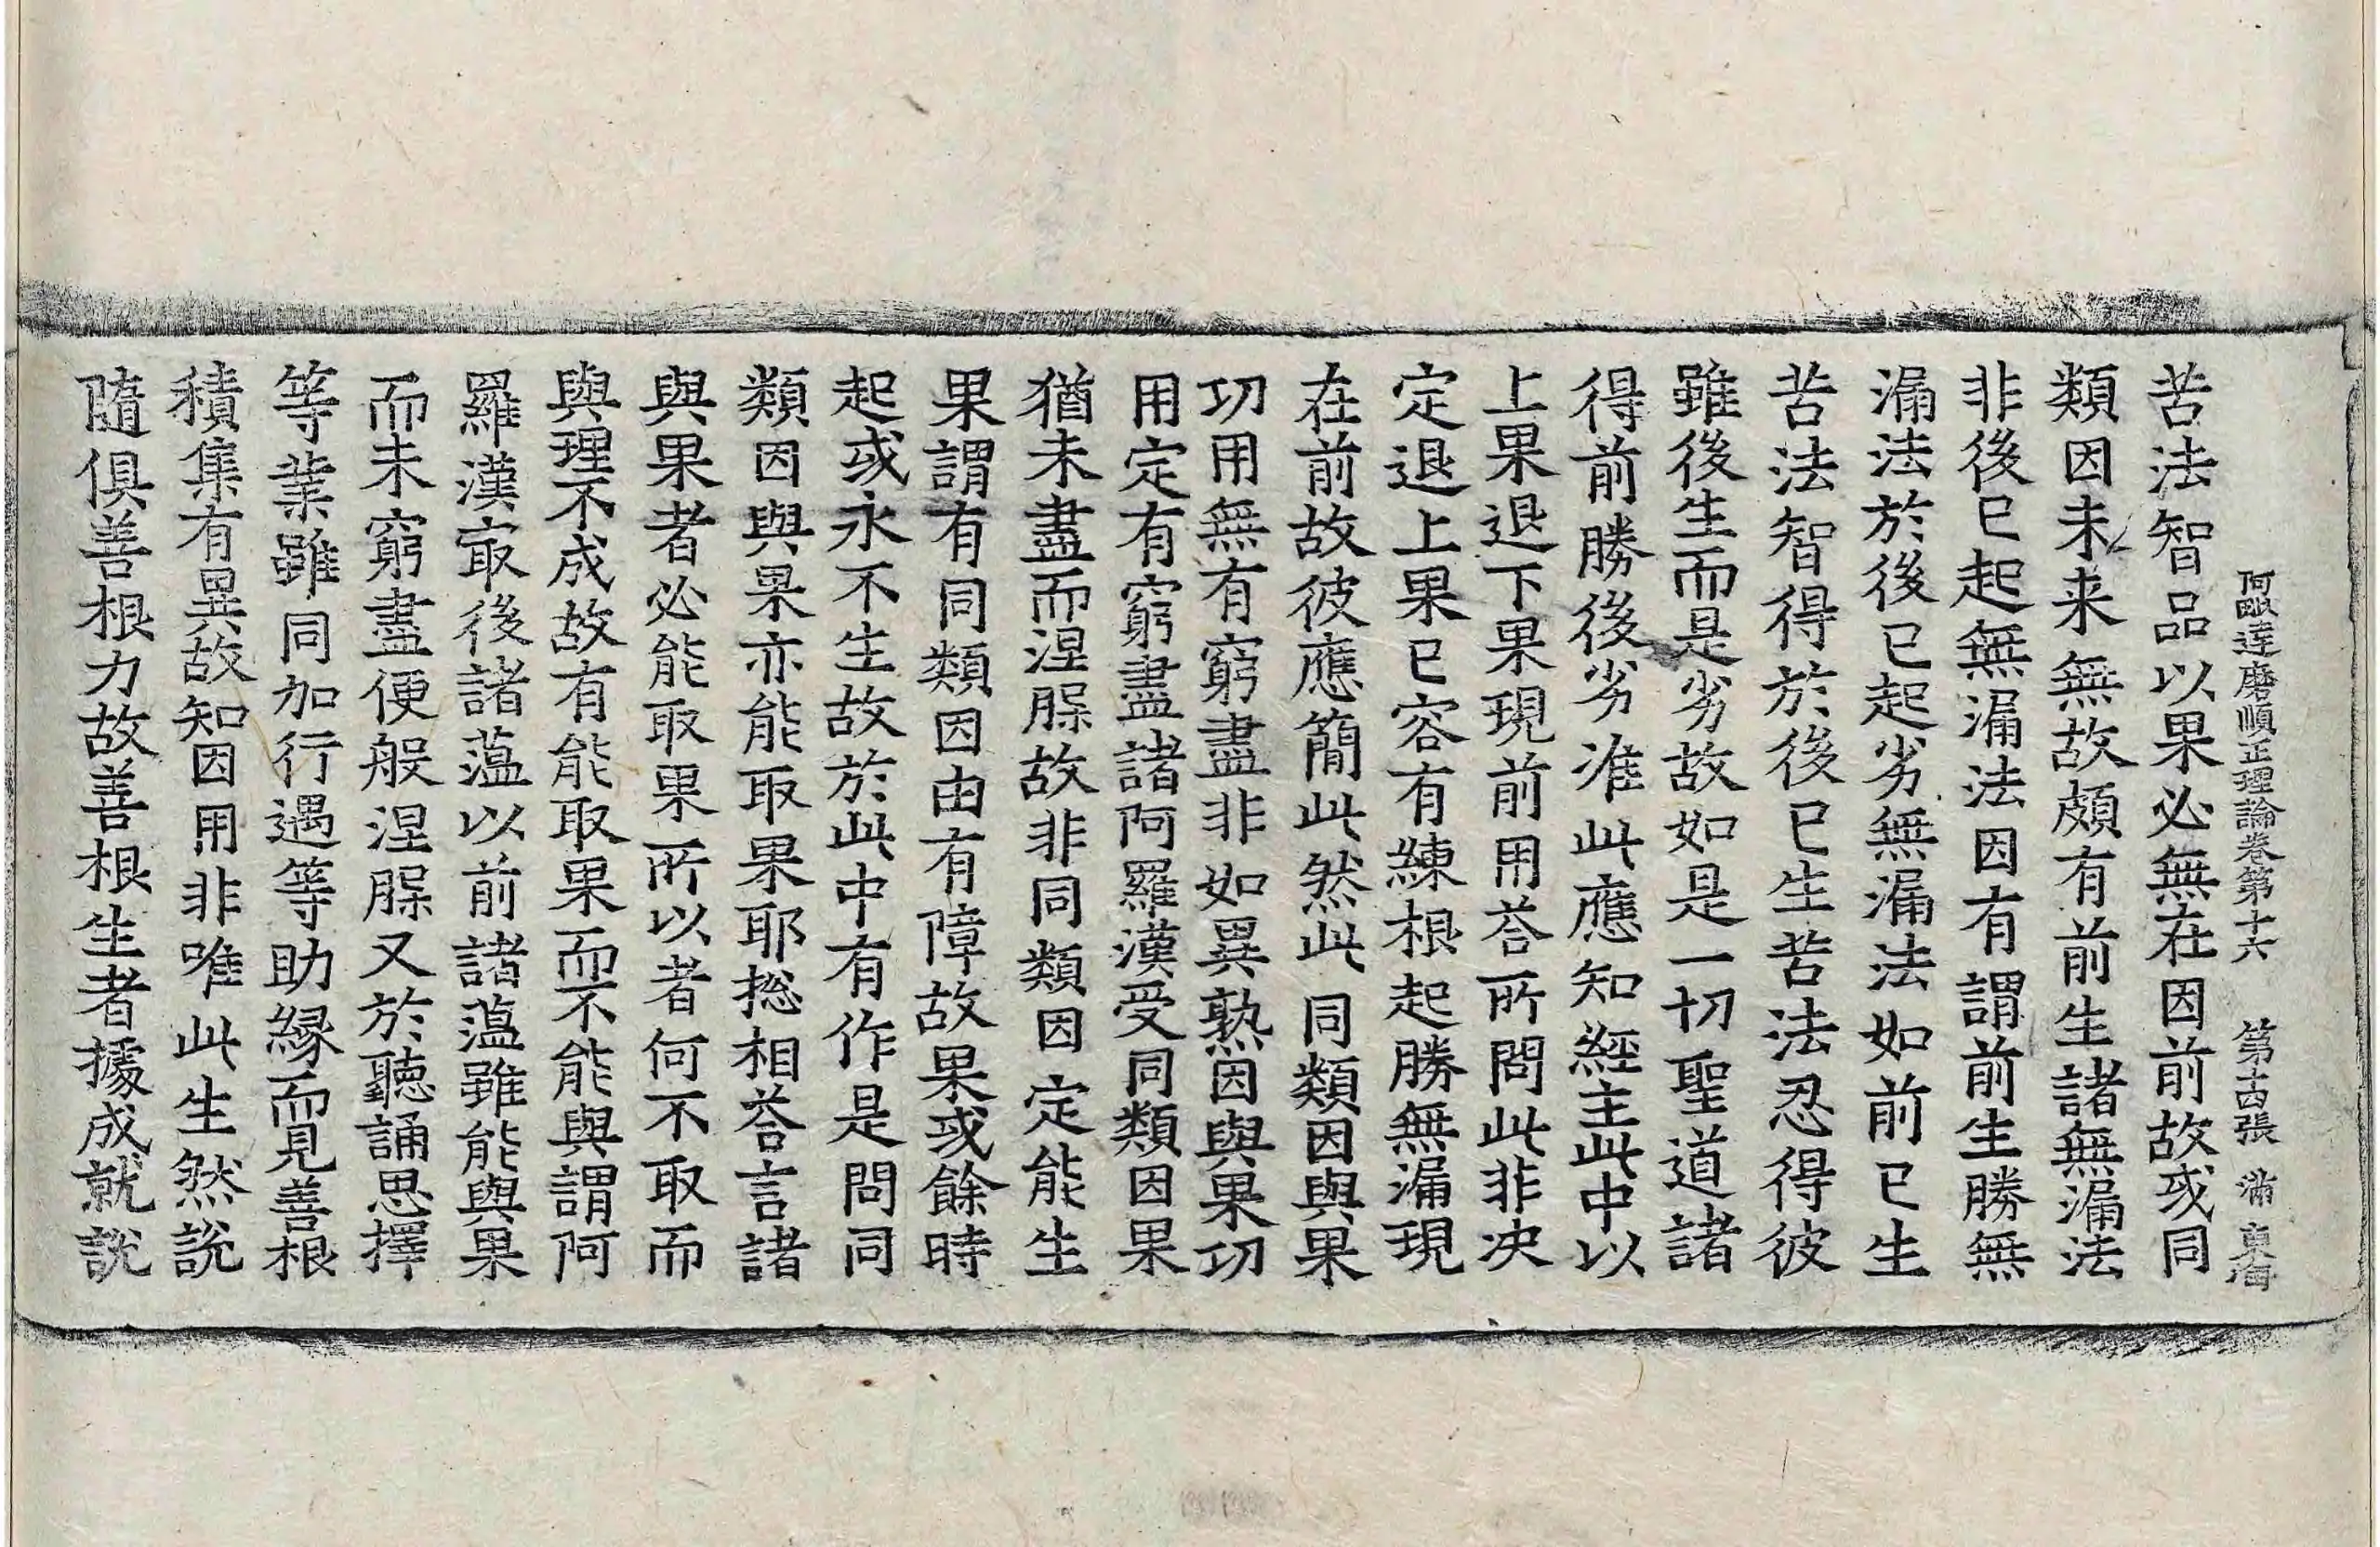 阿毗達磨順正理論卷第十六　第十四張　滿　東海
苦法智品以果必無在因前故或同
類因未来無故頗有前生諸無漏法
非後已起無漏法因有謂前生勝無
漏法於後已起劣無漏法如前已生
苦法智得於後已生苦法忍得彼
雖後生而是劣故如是一切聖道諸
得前勝後劣准此應知經主此中以
上果退下果現前用荅所問此非决
定退上果已容有練根起勝無漏現
在前故彼應簡此然此同類因與果
功用無有窮盡非如異熟因與果功
用定有窮盡諸阿羅漢受同類因果
猶未盡而涅槃故非同類因定能生
果謂有同類因由有障故果或餘時
起或永不生故於此中有作是問同
類因與果亦能取果耶捴相荅言諸
與果者必能取果所以者何不取而
與理不成故有能取果而不能與謂阿
羅漢㝡後諸蘊以前諸蘊雖能與果
而未窮盡便般涅槃又於聽誦思擇
等業雖同加行遇等助緣而見善根
積集有異故知因用非唯此生然說
隨俱善根力故善根生者據成就說